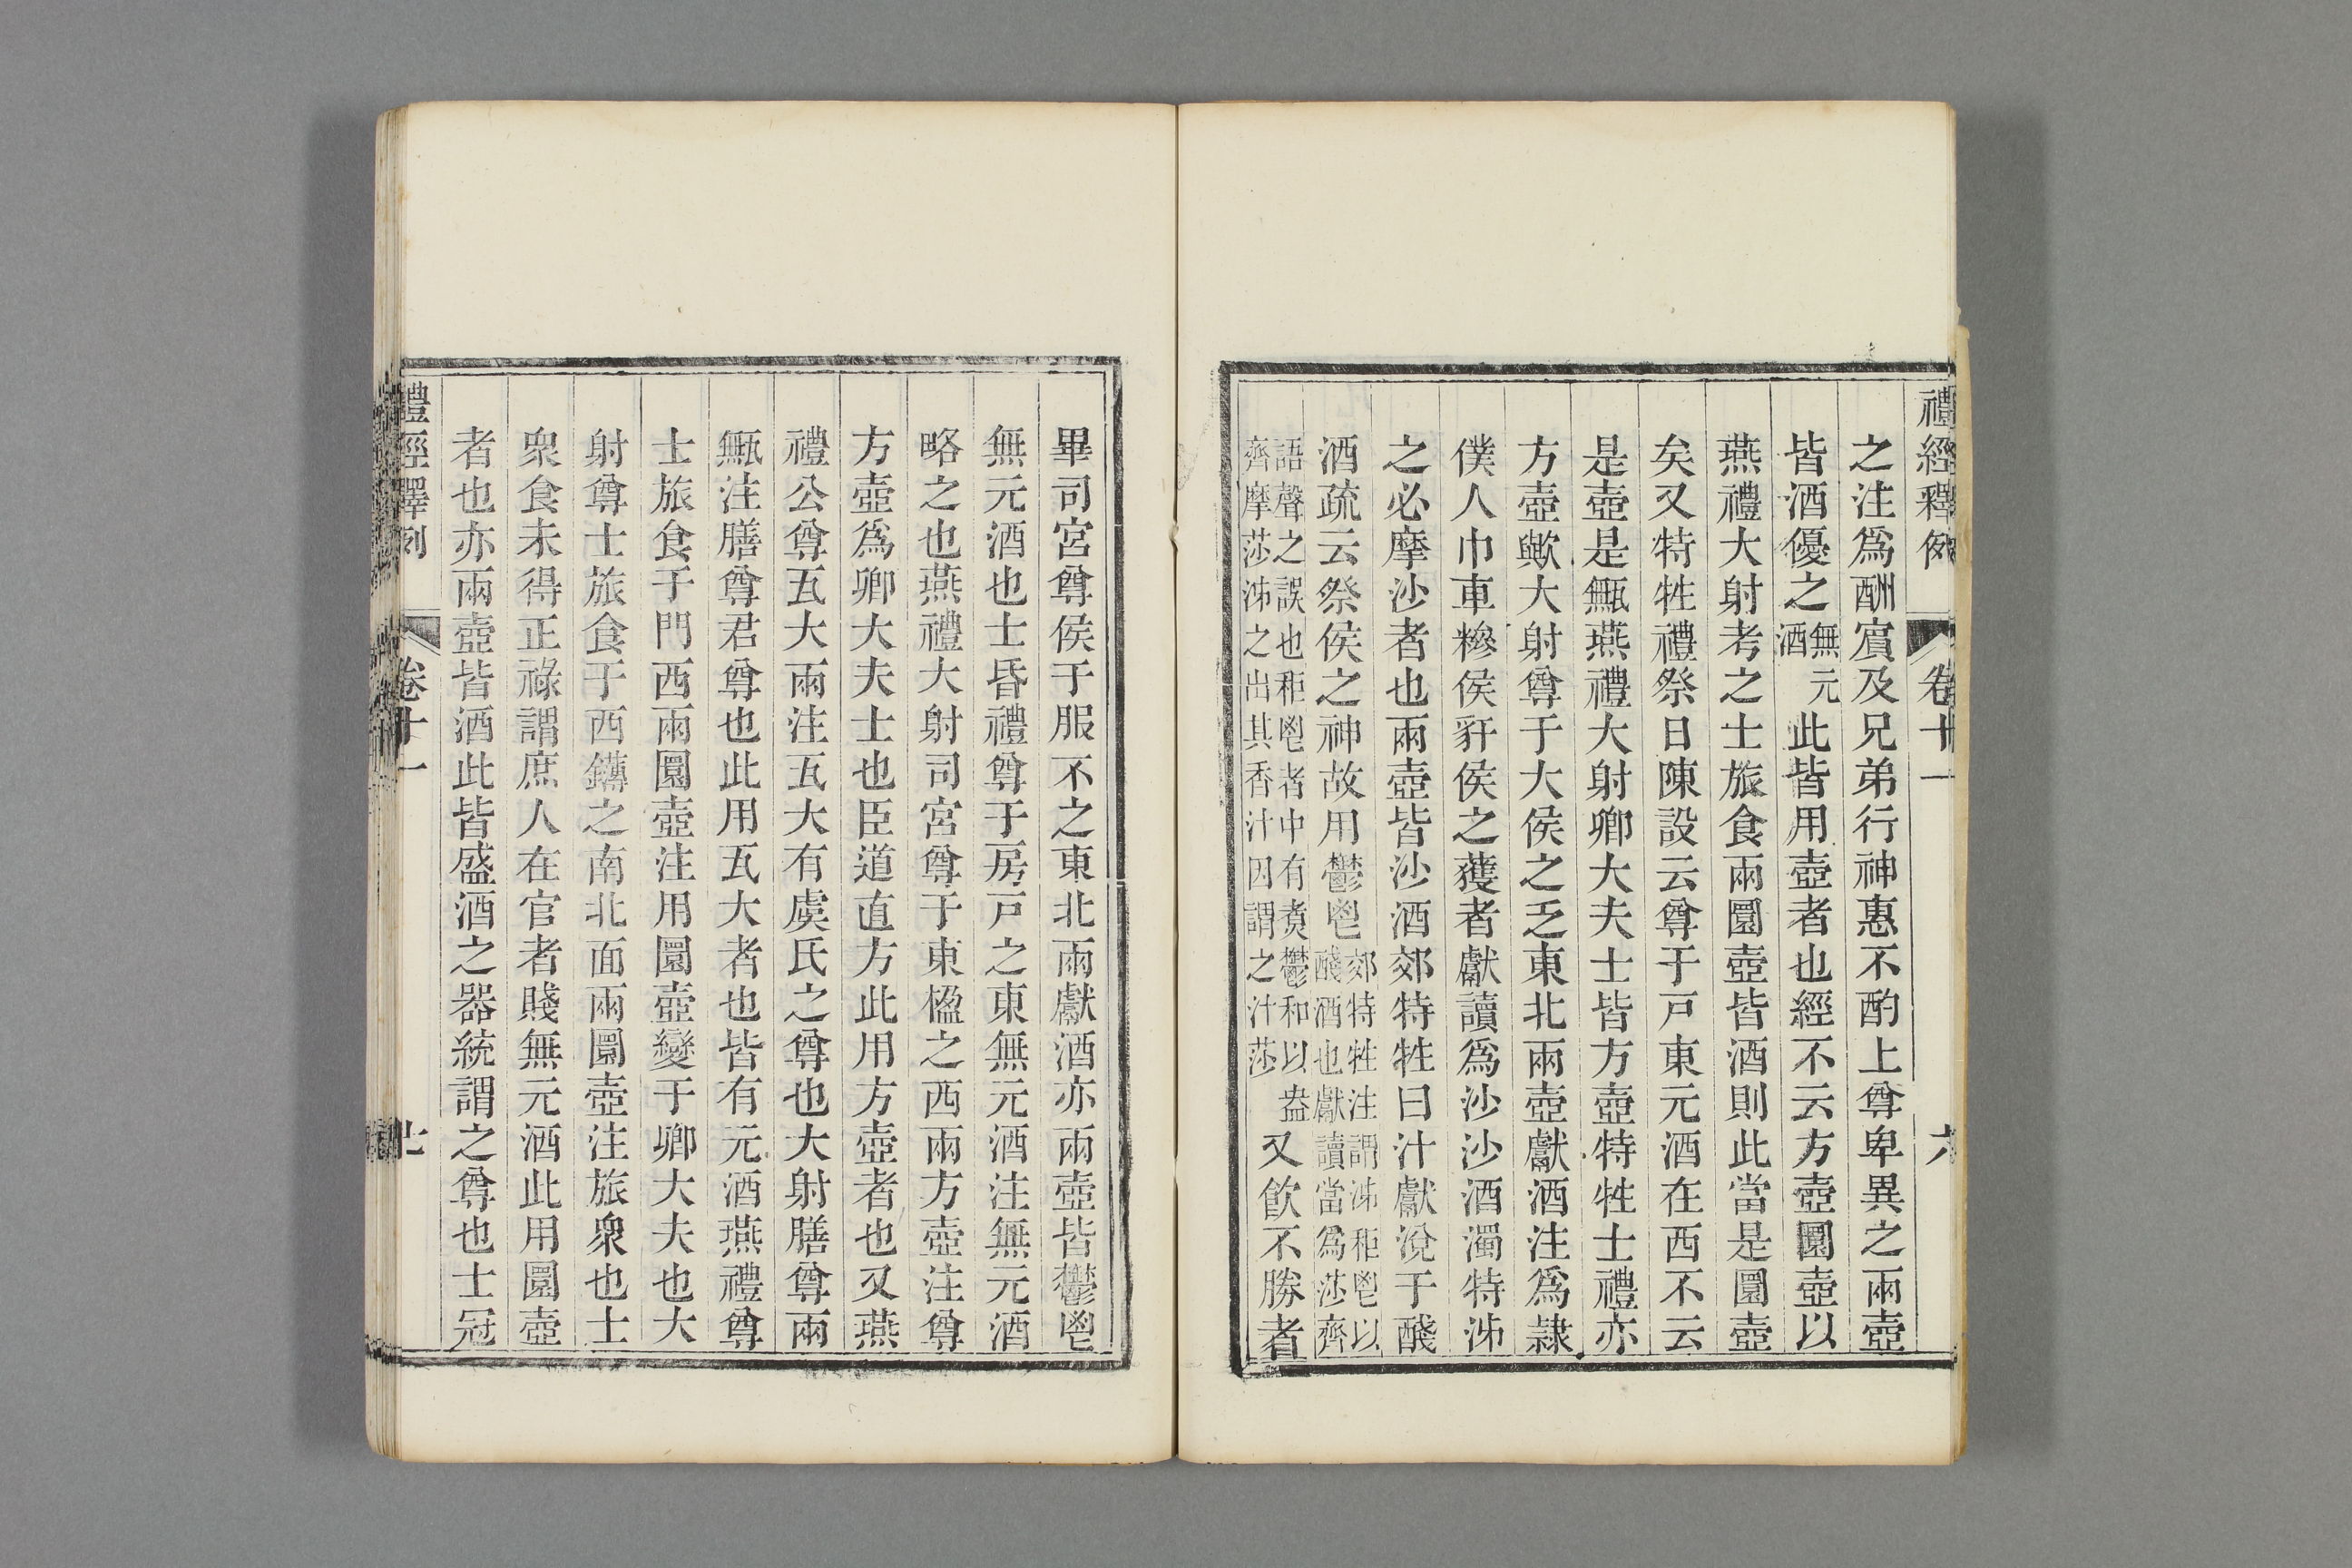 禮經釋例 卷十一 六
之注爲酬賓及兄弟行神惠不酌上尊卑異之兩壺
皆酒優之無元酒此皆用壺者也經不云方壺圜壺以
燕禮大射考之士旅食兩圜壺皆酒則此當是圜壺
矣又特牲禮祭日陳設云尊于戸東元酒在西不云
是壺是甒燕禮大射卿大夫士皆方壺特牲士禮亦
方壺歟大射尊于大侯之乏東北兩壺獻酒注爲隷
僕人巾車糝侯豻侯之獲者獻讀爲沙沙酒濁特泲
之必摩沙者也兩壺皆沙酒郊特牲曰汁獻涗于醆
酒疏云祭侯之神故用鬱鬯郊特牲注謂泲秬鬯以醆酒也獻讀當爲莎齊
語聲之誤也秬鬯者中有煑鬱和以盎齊摩莎泲之出其香汁因謂之汁莎又飲不勝者
畢司宮尊侯于服不之東北兩獻酒亦兩壺皆鬱鬯
無元酒也士昏禮尊于房戸之東無元酒注無元酒
略之也燕禮大射司宮尊于東楹之西兩方壺注尊
方壺爲卿大夫士也臣道直方此用方壺者也又燕
禮公尊瓦大兩注瓦大有虞氏之尊也大射膳尊兩
甒注膳尊君尊也此用瓦大者也皆有元酒燕禮尊
士旅食于門西兩圜壺注用圜壺變于卿大夫也大
射尊士旅食于西鑮之南北面兩圜壺注旅衆也士
衆食未得正祿謂庶人在官者賤無元酒此用圜壺
者也亦兩壺皆酒此皆盛酒之器統謂之尊也士冠
禮經釋例 卷十一 七